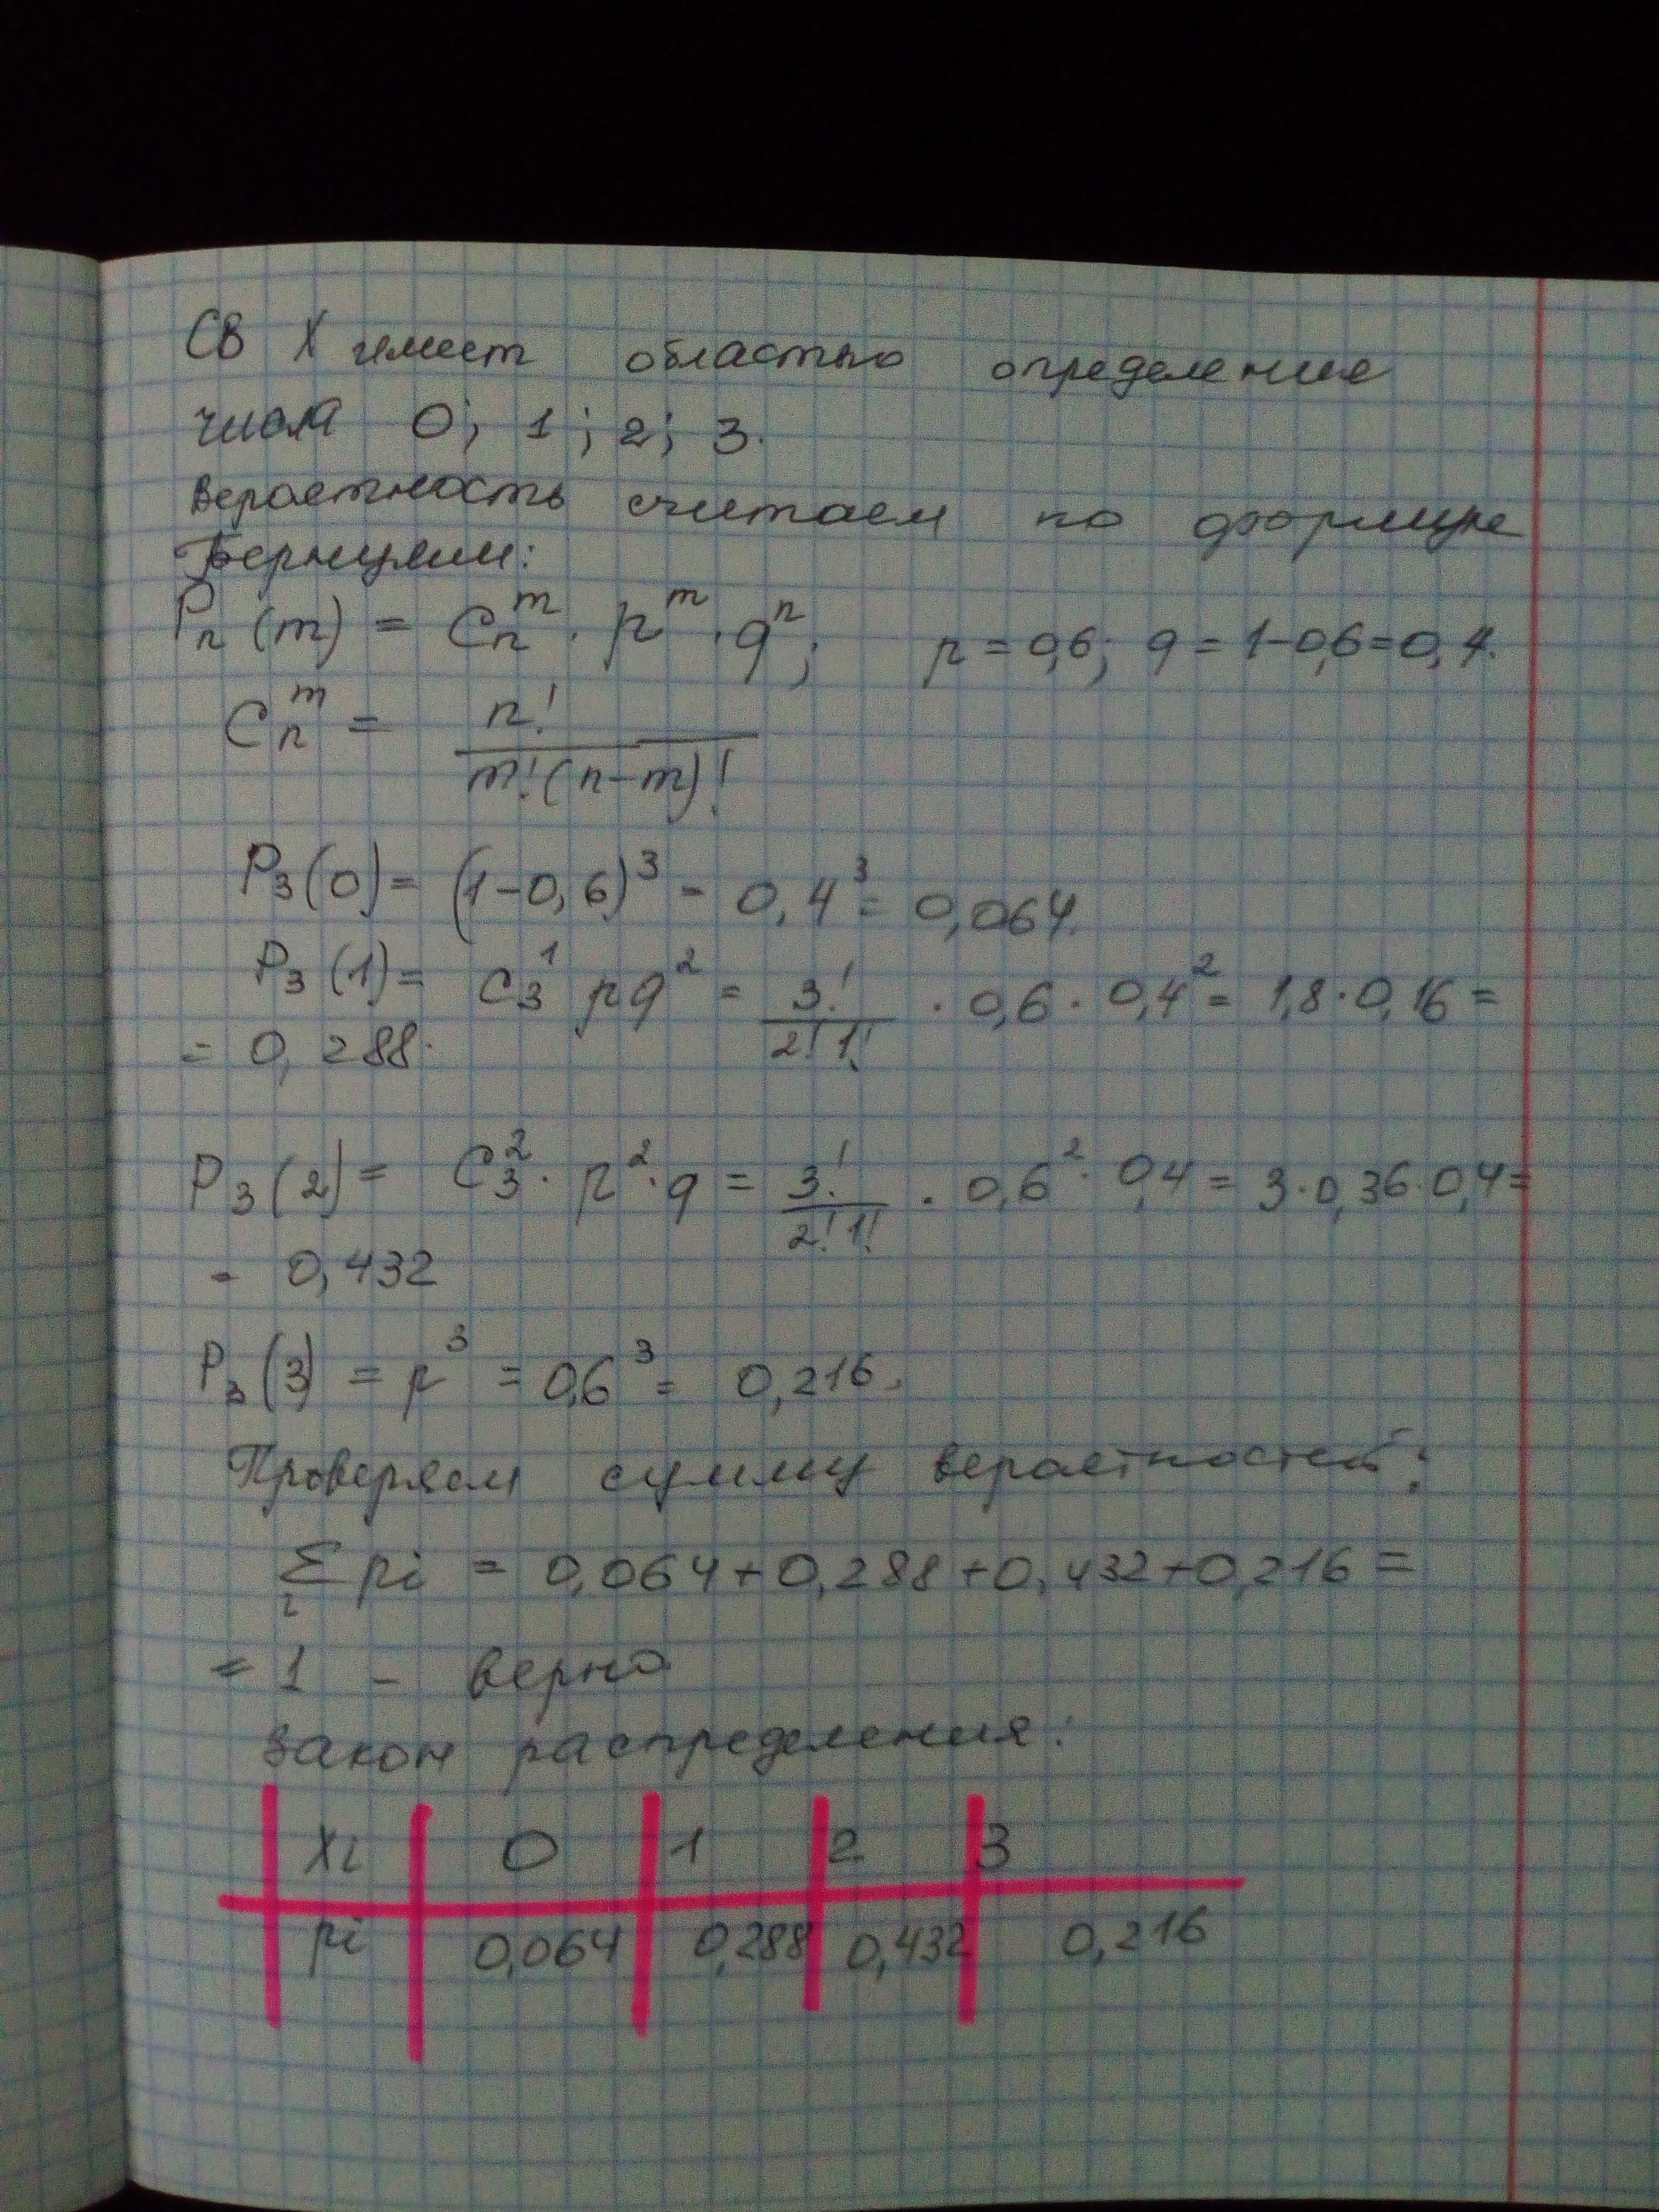 СВ X имеет областью определение
числа 0; 1; 2; 3.
Вероятность считаем по формуле
Бернулли:
Pn(m) = Cₙᵐ · pᵐ · qⁿ; p = 0,6; q = 1-0,6=0,4.
Cₙᵐ = n! / m!(n-m)!
P₃(0) = (1-0,6)³ = 0,4³ = 0,064.
P₃(1) = C₃¹ pq² = 3!/2!1! · 0,6 · 0,4² = 1,8 · 0,16 =
= 0,288.
P₃(2) = C₃² · p² · q = 3!/2!1! · 0,6² · 0,4 = 3 · 0,36 · 0,4 =
= 0,432
P₃(3) = p³ = 0,6³ = 0,216.
Проверяем сумму вероятностей:
Σ pi = 0,064+0,288+0,432+0,216 =
i
= 1 – верно
Закон распределения:
Xi 0 1 2 3
pi 0,064 0,288 0,432 0,216